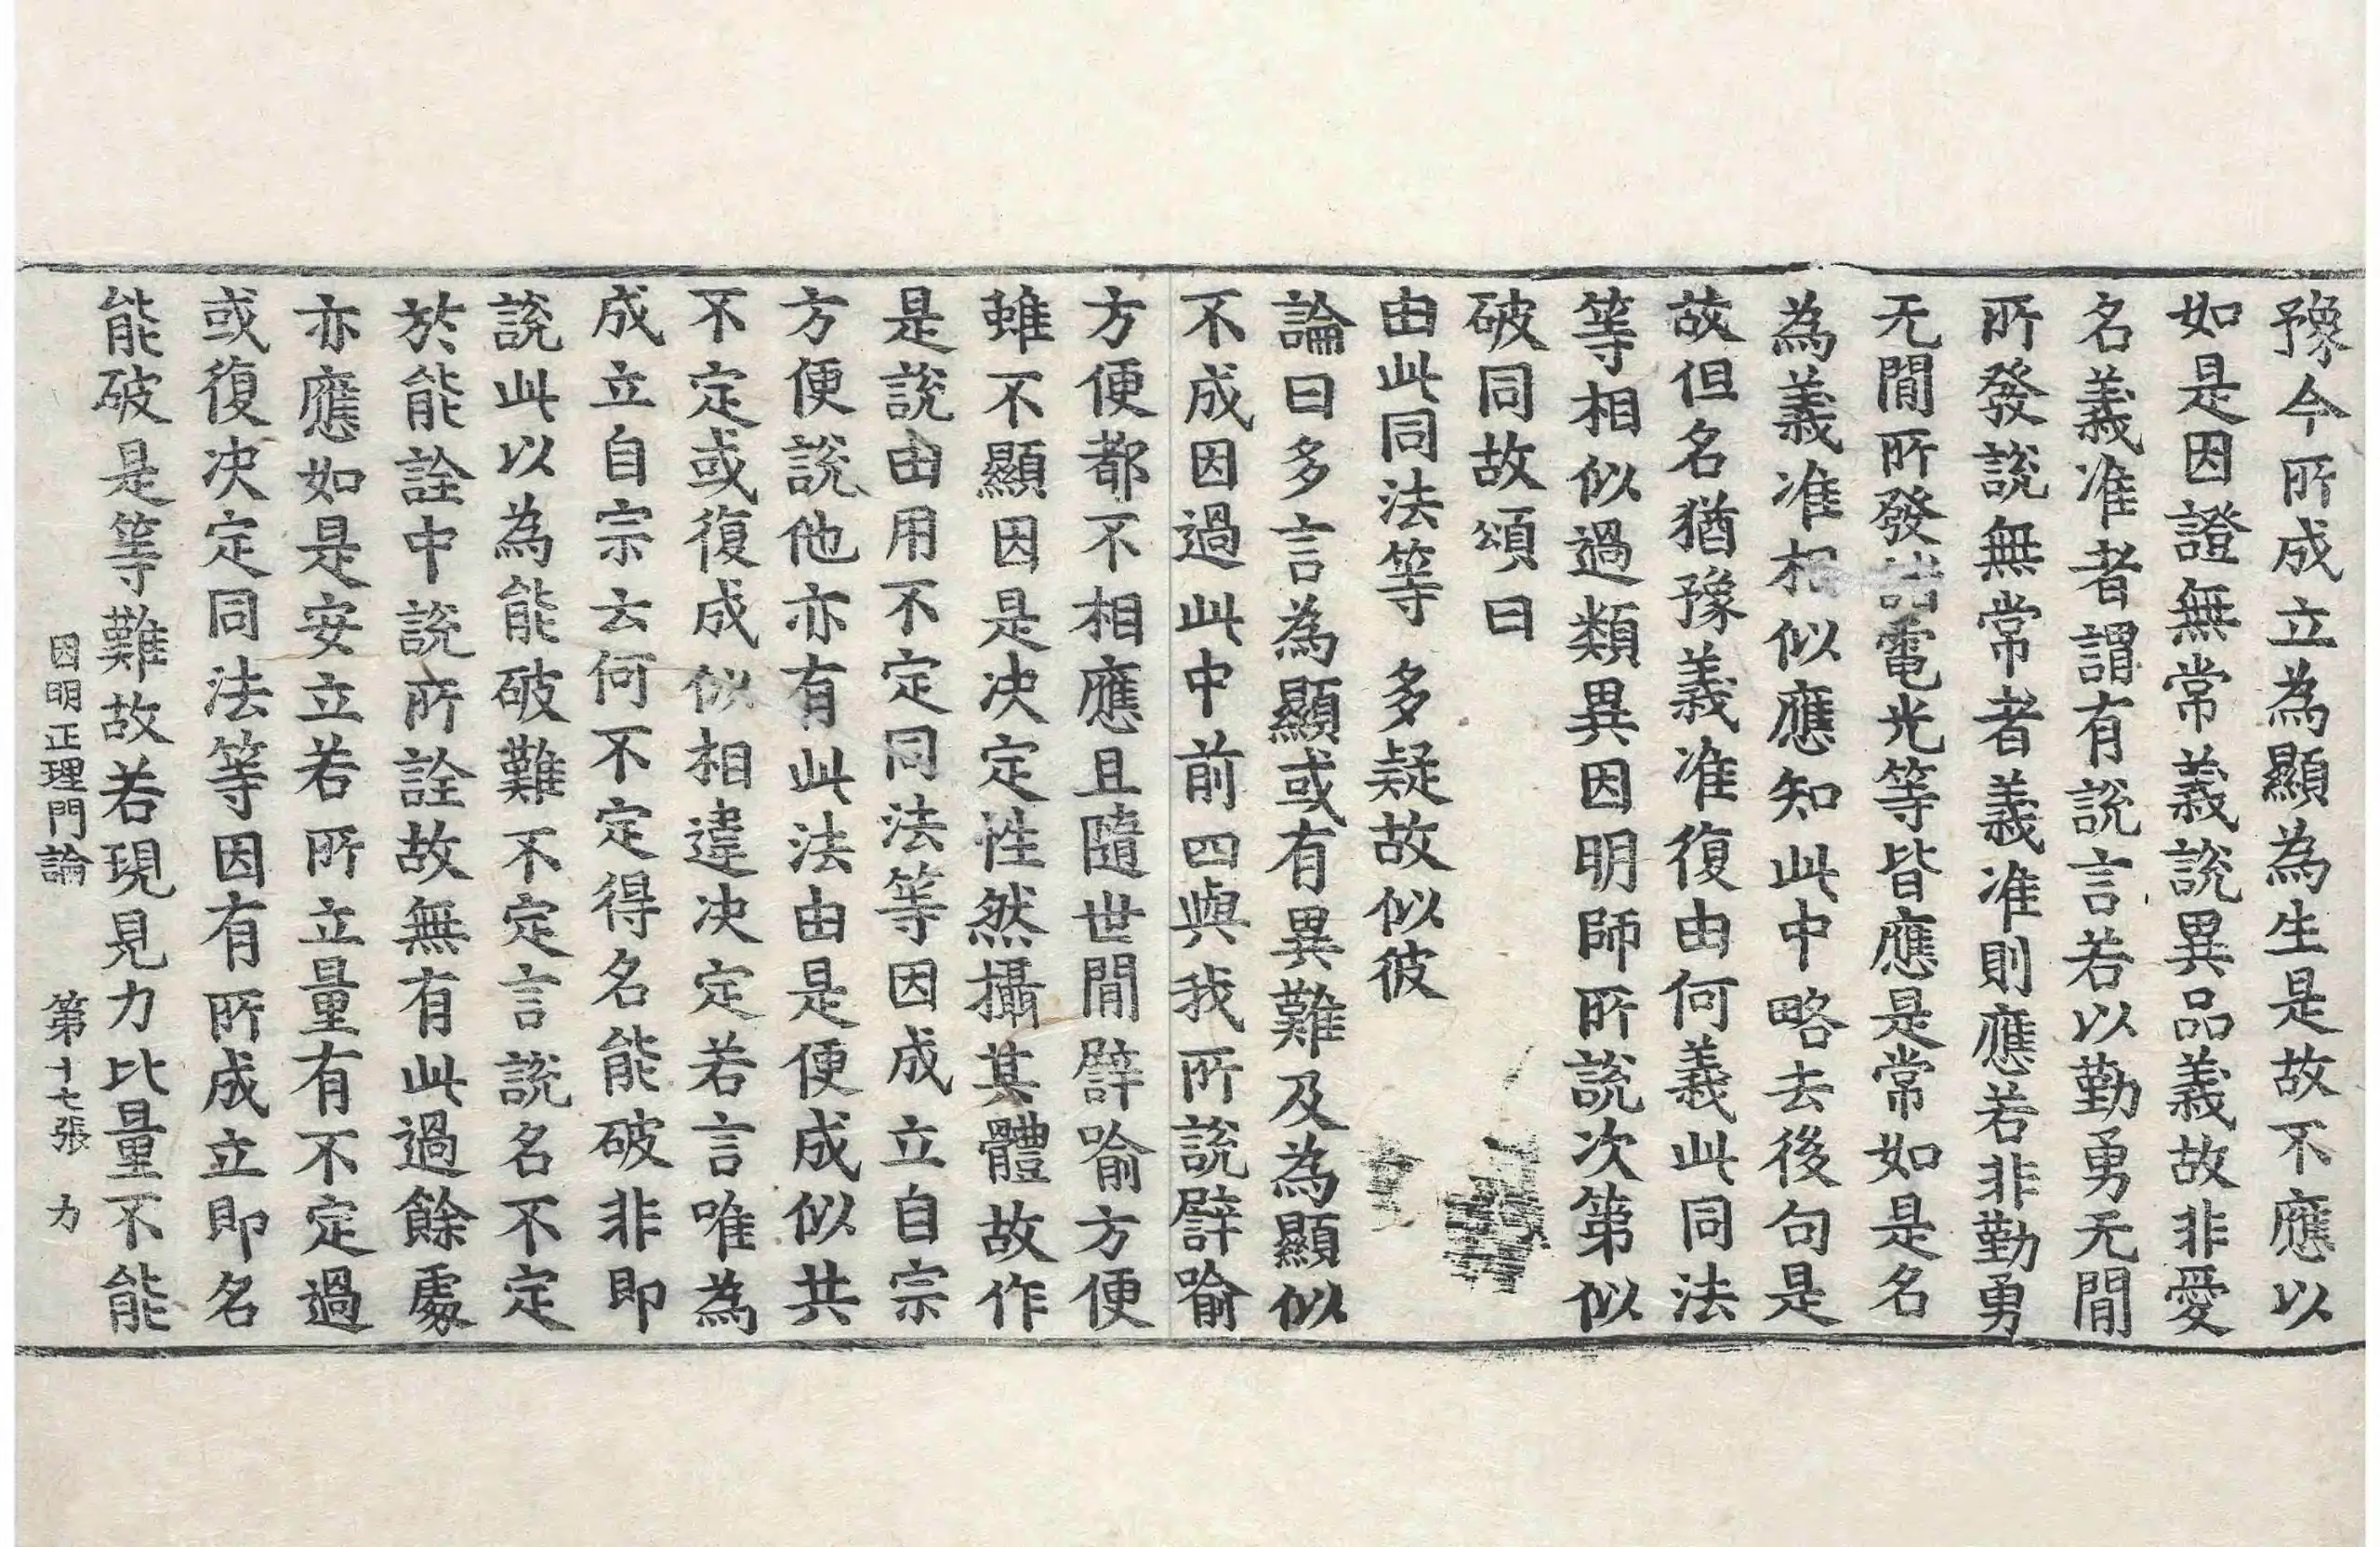 豫今所成立為顯為生是故不應以
如是因證無常義說異品義故非愛
名義准者謂有說言若以勤勇无閒
所發說無常者義准則應若非勤勇
无閒所發諸電光等皆應是常如是名
為義准相似應知此中略去後句是
故但名猶豫義准復由何義此同法
等相似過類異因明師所說次第似
破同故頌曰
由此同法等　多疑故似彼
論曰多言為顯或有異難及為顯似
不成因過此中前四與我所說譬喻
方便都不相應且隨世閒譬喻方便
雖不顯因是决定性然攝其體故作
是說由用不定同法等因成立自宗
方便說他亦有此法由是便成似共
不定或復成似相違决定若言唯為
成立自宗云何不定得名能破非即
說此以為能破難不定言說名不定
於能詮中說所詮故無有此過餘處
亦應如是安立若所立量有不定過
或復决定同法等因有所成立即名
能破是等難故若現見力比量不能
因明正理門論　第十七張　力